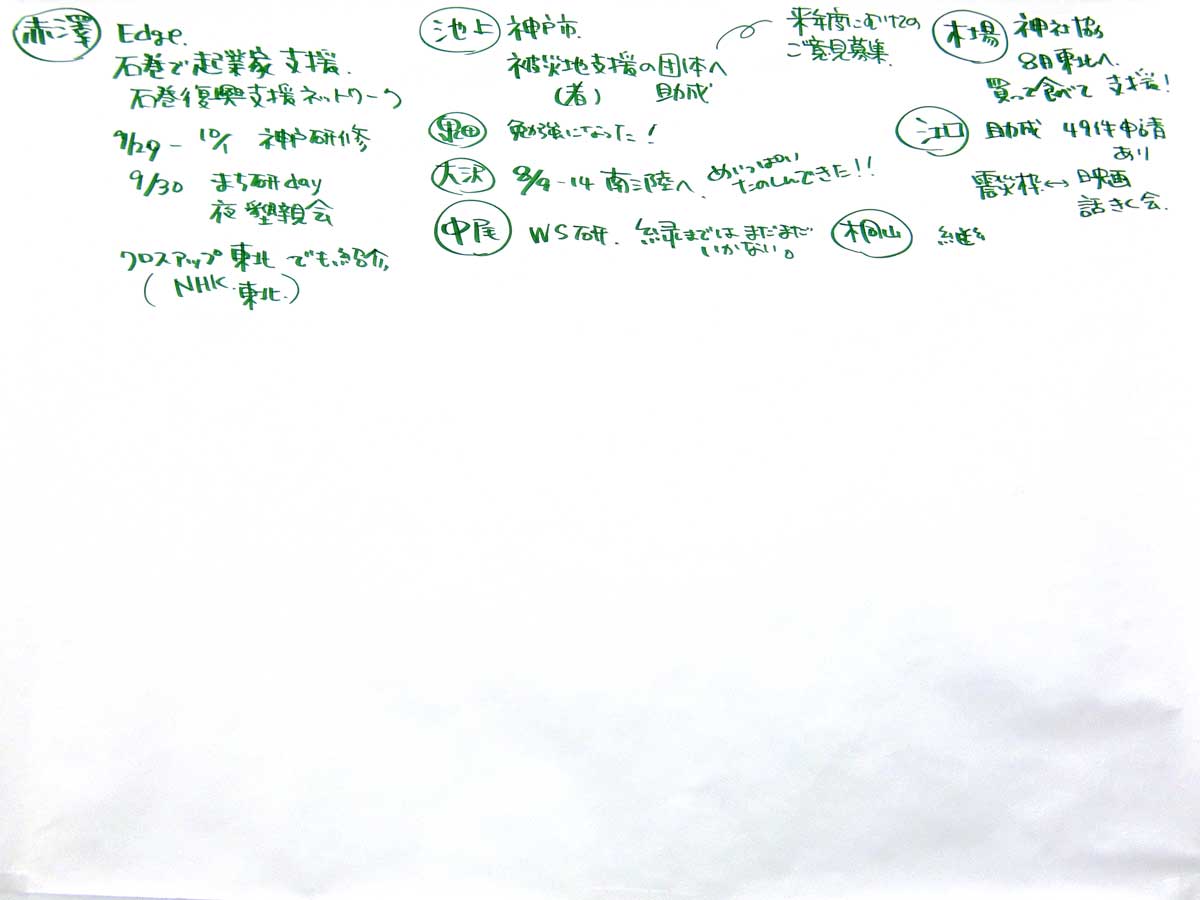 赤澤 Edge.
石巻で起業家支援.
石巻復興支援ネットワーク
9/29 - 10/1 神戸研修
9/30 まち研day
夜 懇親会
クロスアップ東北 でも紹介
(NHK.東北.)
池上 神戸市.
被災地支援の団体へ
(者) 助成
来年度にむけての
ご意見募集
勉強になった!
大沢 8/9-14 南三陸へ. めいっぱい
たのしんできた!!
中尾 WS研. 登録まではまだまだ
いかない。
木場 神社協
8日東北へ.
買って食べて支援!
江口 助成 49件申請
あり
震災枠↔映画
話きく会.
桐山